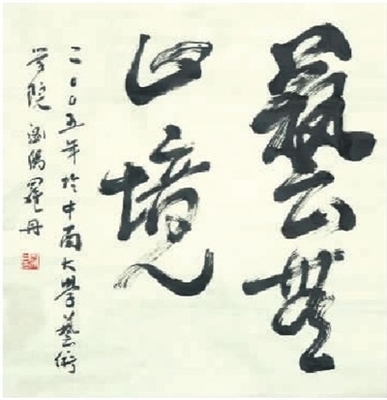 藝無
止境
二〇〇五年於中南大學藝術
学院 羅丹